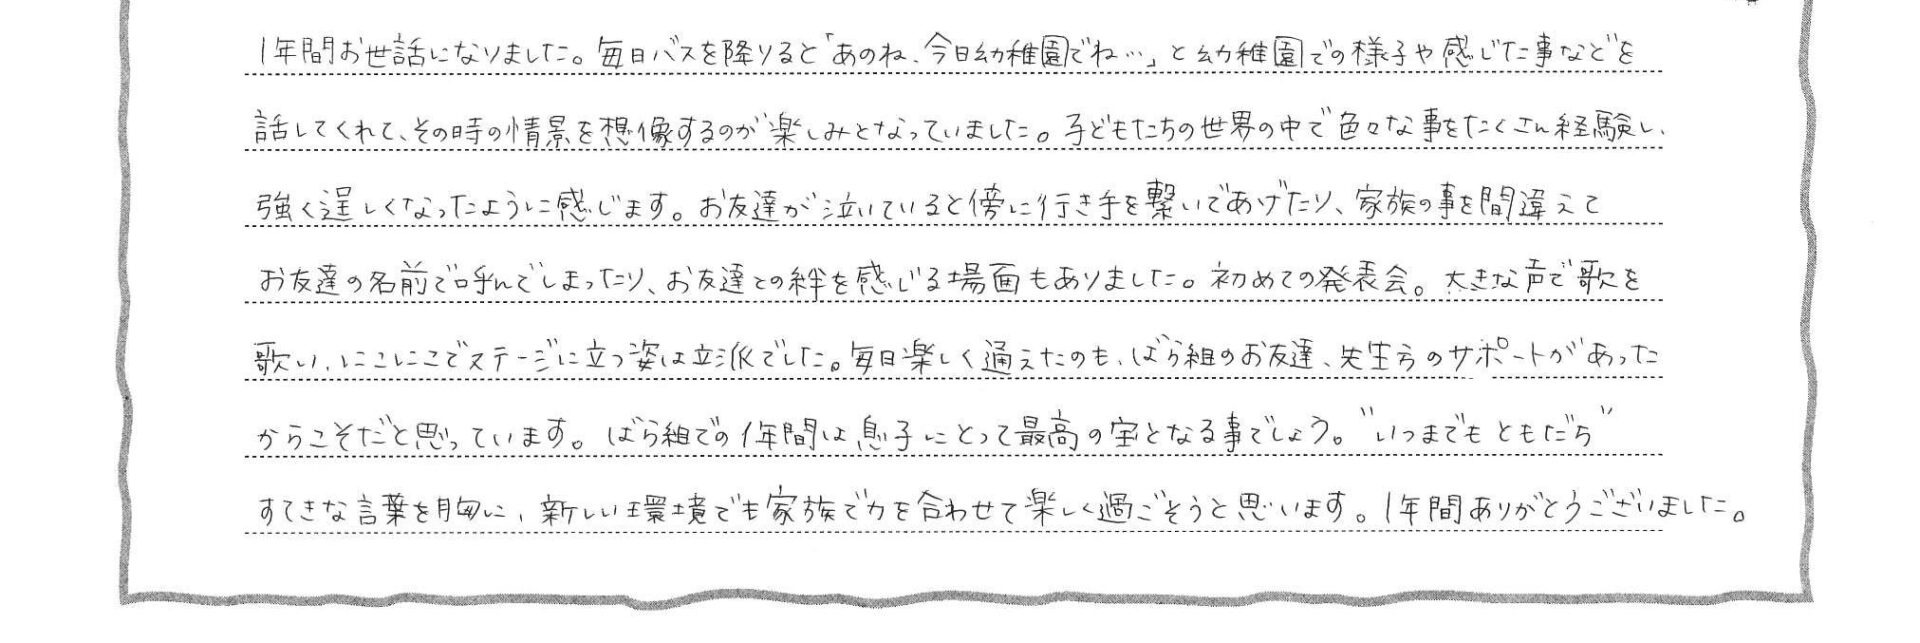 1年間お世話になりました。毎日バスを降りると「あのね、今日幼稚園でね…」と幼稚園での様子や感じた事などを
話してくれて、その時の情景を想像するのが楽しみとなっていました。子どもたちの世界の中で色々な事をたくさん経験し、
強く逞しくなったように感じます。お友達が泣いていると傍に行き手を繋いであげたり、家族の事を間違えて
お友達の名前で呼んでしまったり、お友達との絆を感じる場面もありました。初めての発表会。大きな声で歌を
歌い、にこにこでステージに立つ姿は立派でした。毎日楽しく通えたのも、ばら組のお友達、先生方のサポートがあった
からこそだと思っています。ばら組での1年間は息子にとって最高の宝となる事でしょう。"いつまでもともだち"
すてきな言葉を胸に、新しい環境でも家族で力を合わせて楽しく過ごそうと思います。1年間ありがとうございました。